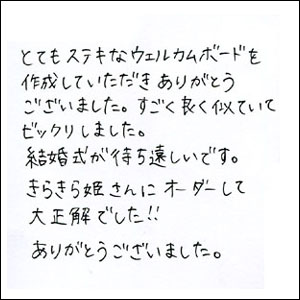 とてもステキなウェルカムボードを
作成していただきありがとう
ございました。すごく良く似ていて
ビックリしました。
結婚式が待ち遠しいです。
きらきら姫さんにオーダーして
大正解でした!!
ありがとうございました。